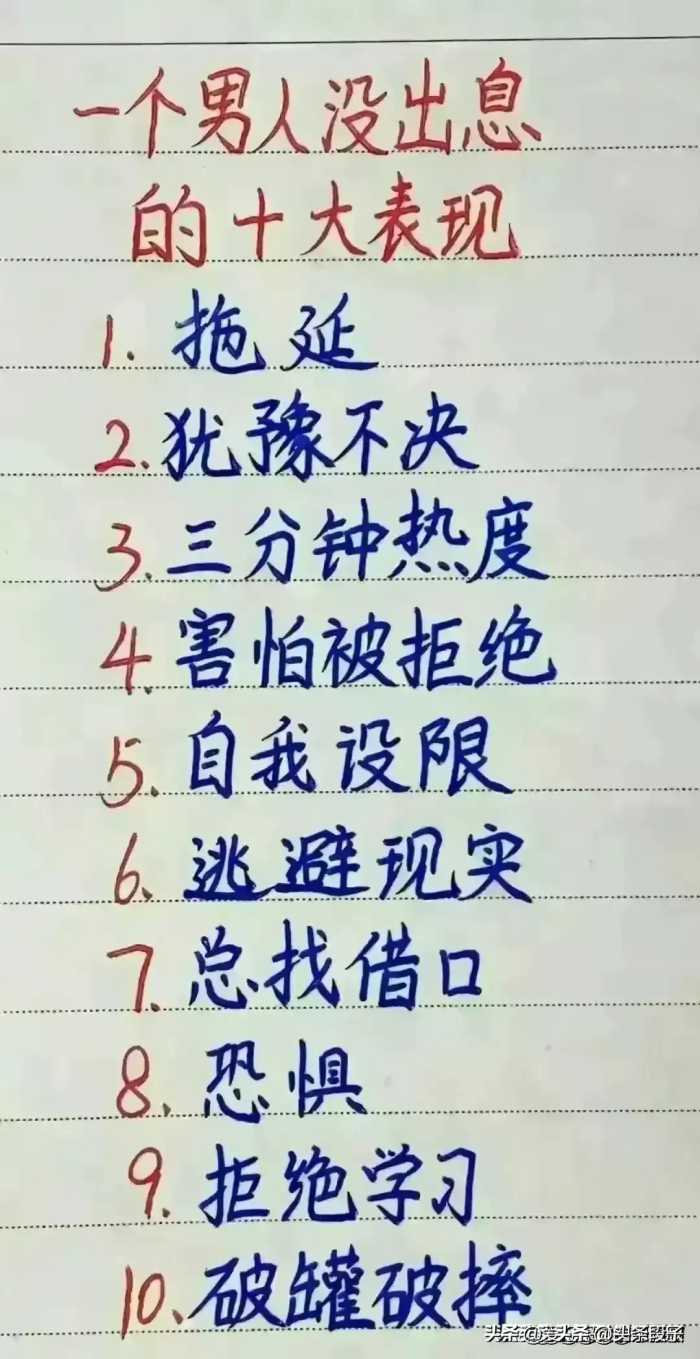 一个男人没出息
的十大表现
1. 拖延
2. 犹豫不决
3. 三分钟热度
4. 害怕被拒绝
5. 自我设限
6、逃避现实
7. 总找借口
8、恐惧
9. 拒绝学习
10、破罐破摔
头条